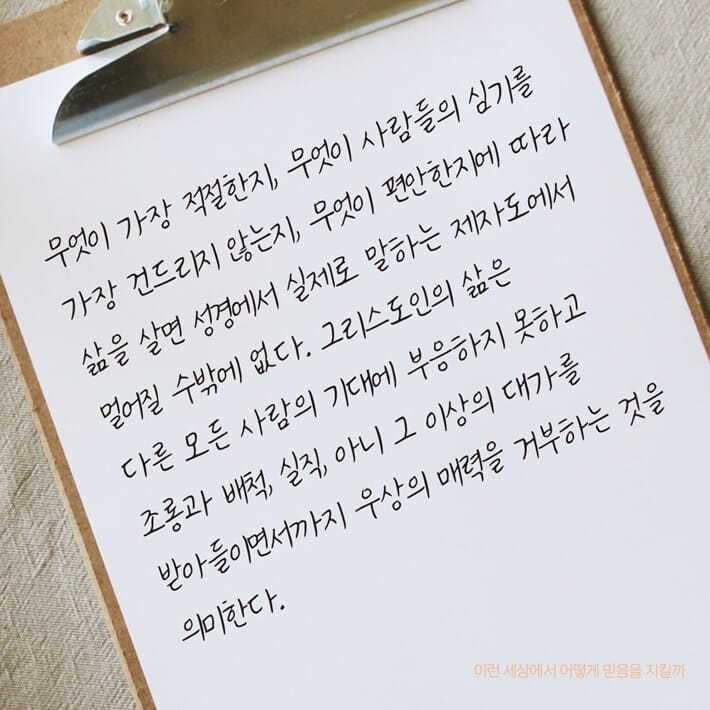 무엇이 가장 적절한지, 무엇이 사람들의 심기를
가장 건드리지 않는지, 무엇이 편안한지에 따라
삶을 살면 성경에서 실제로 말하는 제자도에서
멀어질 수밖에 없다. 그리스도인의 삶은
다른 모든 사람의 기대에 부응하지 못하고
조롱과 배척, 실직, 아니 그 이상의 대가를
받아들이면서까지 우상의 매력을 거부하는 것을
의미한다.
이런 세상에서 어떻게 믿음을 지킬까